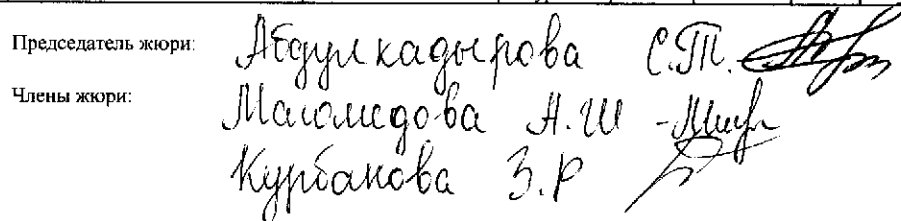 Председатель жюри: Абдулкадырова С.Т.
Члены жюри: Магомедова А.Ш
Курбанова З.Р